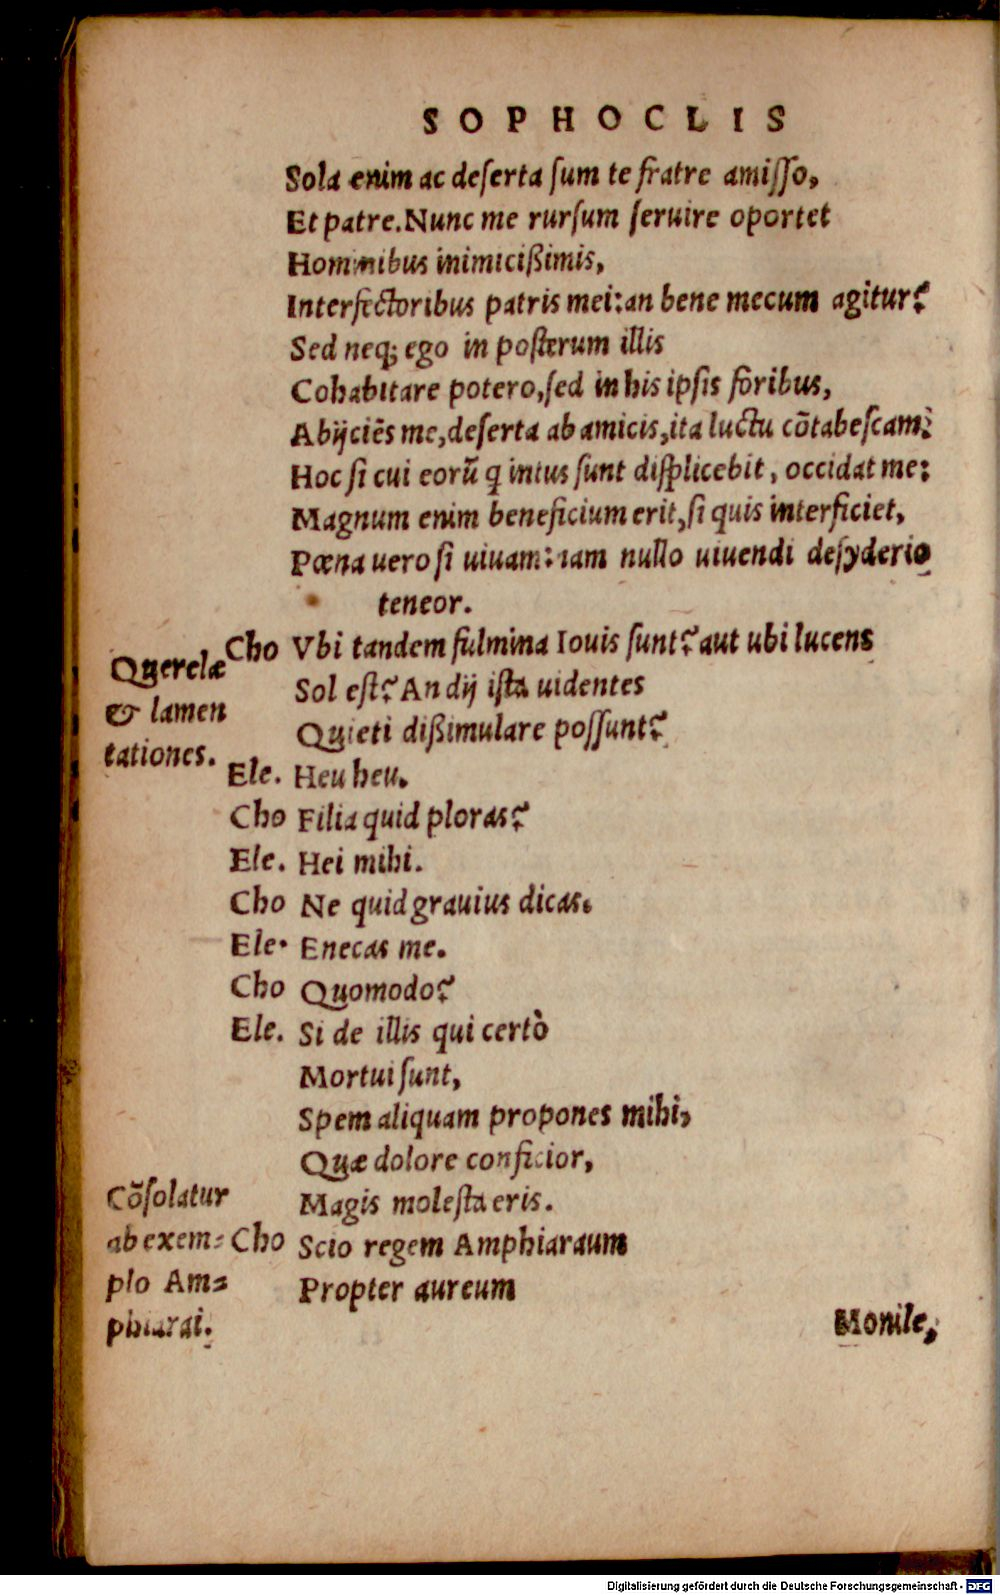 SOPHOCLIS
Sola enim ac deserta sum te fratre amisso,
Et patre. Nunc me rursum seruire oportet
Hominibus inimicißimis,
Interfectoribus patris mei: an bene mecum agitur?
Sed neq; ego in posterum illis
Cohabitare potero, sed in his ipsis foribus,
Abijciēs me, deserta ab amicis, ita luctu cōtabescam:
Hoc si cui eorū q intus sunt displicebit, occidat me:
Magnum enim beneficium erit, si quis interficiet,
Pœna uero si uiuam: nam nullo uiuendi desyderio
teneor.
Cho Vbi tandem fulmina Iouis sunt? aut ubi lucens
Querelæ
& lamen
tationes.
Sol est? An dij ista uidentes
Quieti dißimulare possunt?
Ele. Heu heu.
Cho Filia quid ploras?
Ele. Hei mihi.
Cho Ne quid grauius dicas.
Ele. Enecas me.
Cho Quomodo?
Ele. Si de illis qui certò
Mortui sunt,
Spem aliquam propones mihi,
Quæ dolore conficior,
Magis molesta eris.
Cōsolatur
ab exem=
plo Am=
phiarai.
Cho Scio regem Amphiaraum
Propter aureum
Monile,
Digitalisierung gefördert durch die Deutsche Forschungsgemeinschaft - DFG